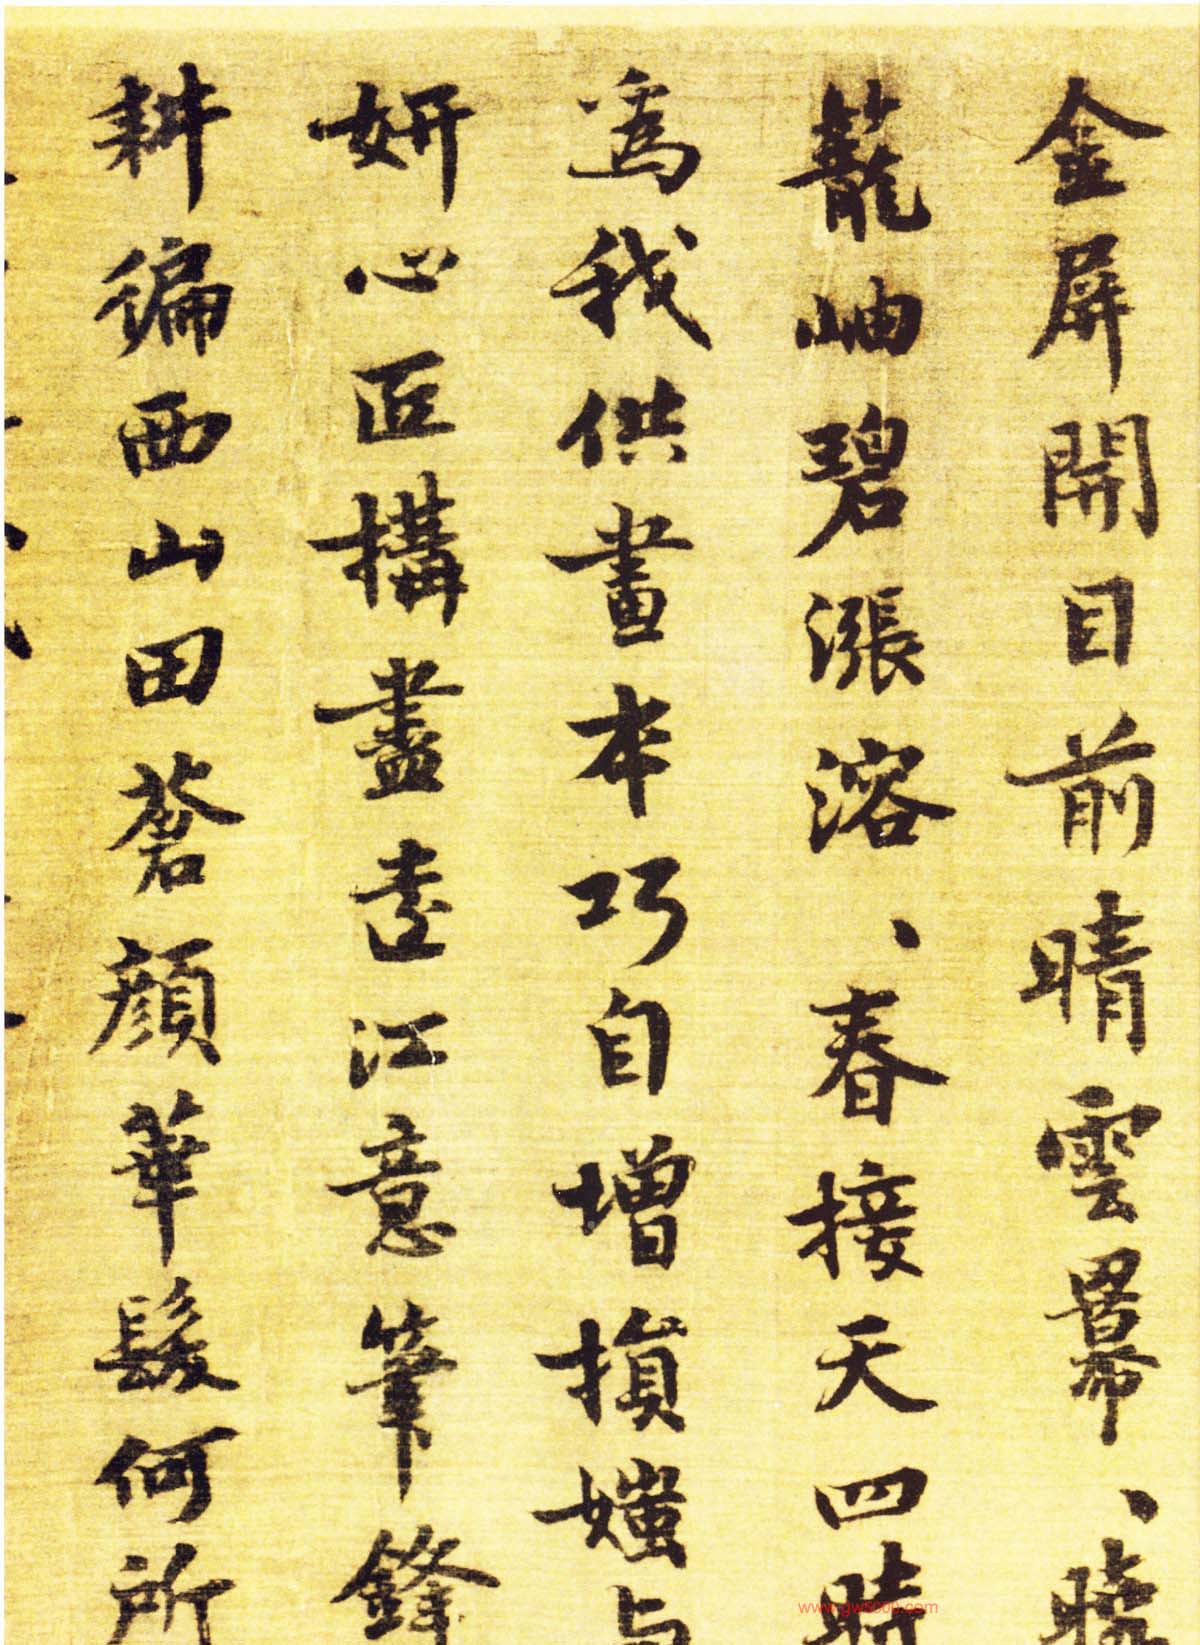 金屏開目前晴雲羃、曉
蘢岫碧漲溶、春接天四時
為我供畫本巧自增損媸與
妍心匠構盡遠江意筆鋒
耕徧西山田蒼顏華髮何所
www.gw8000.com